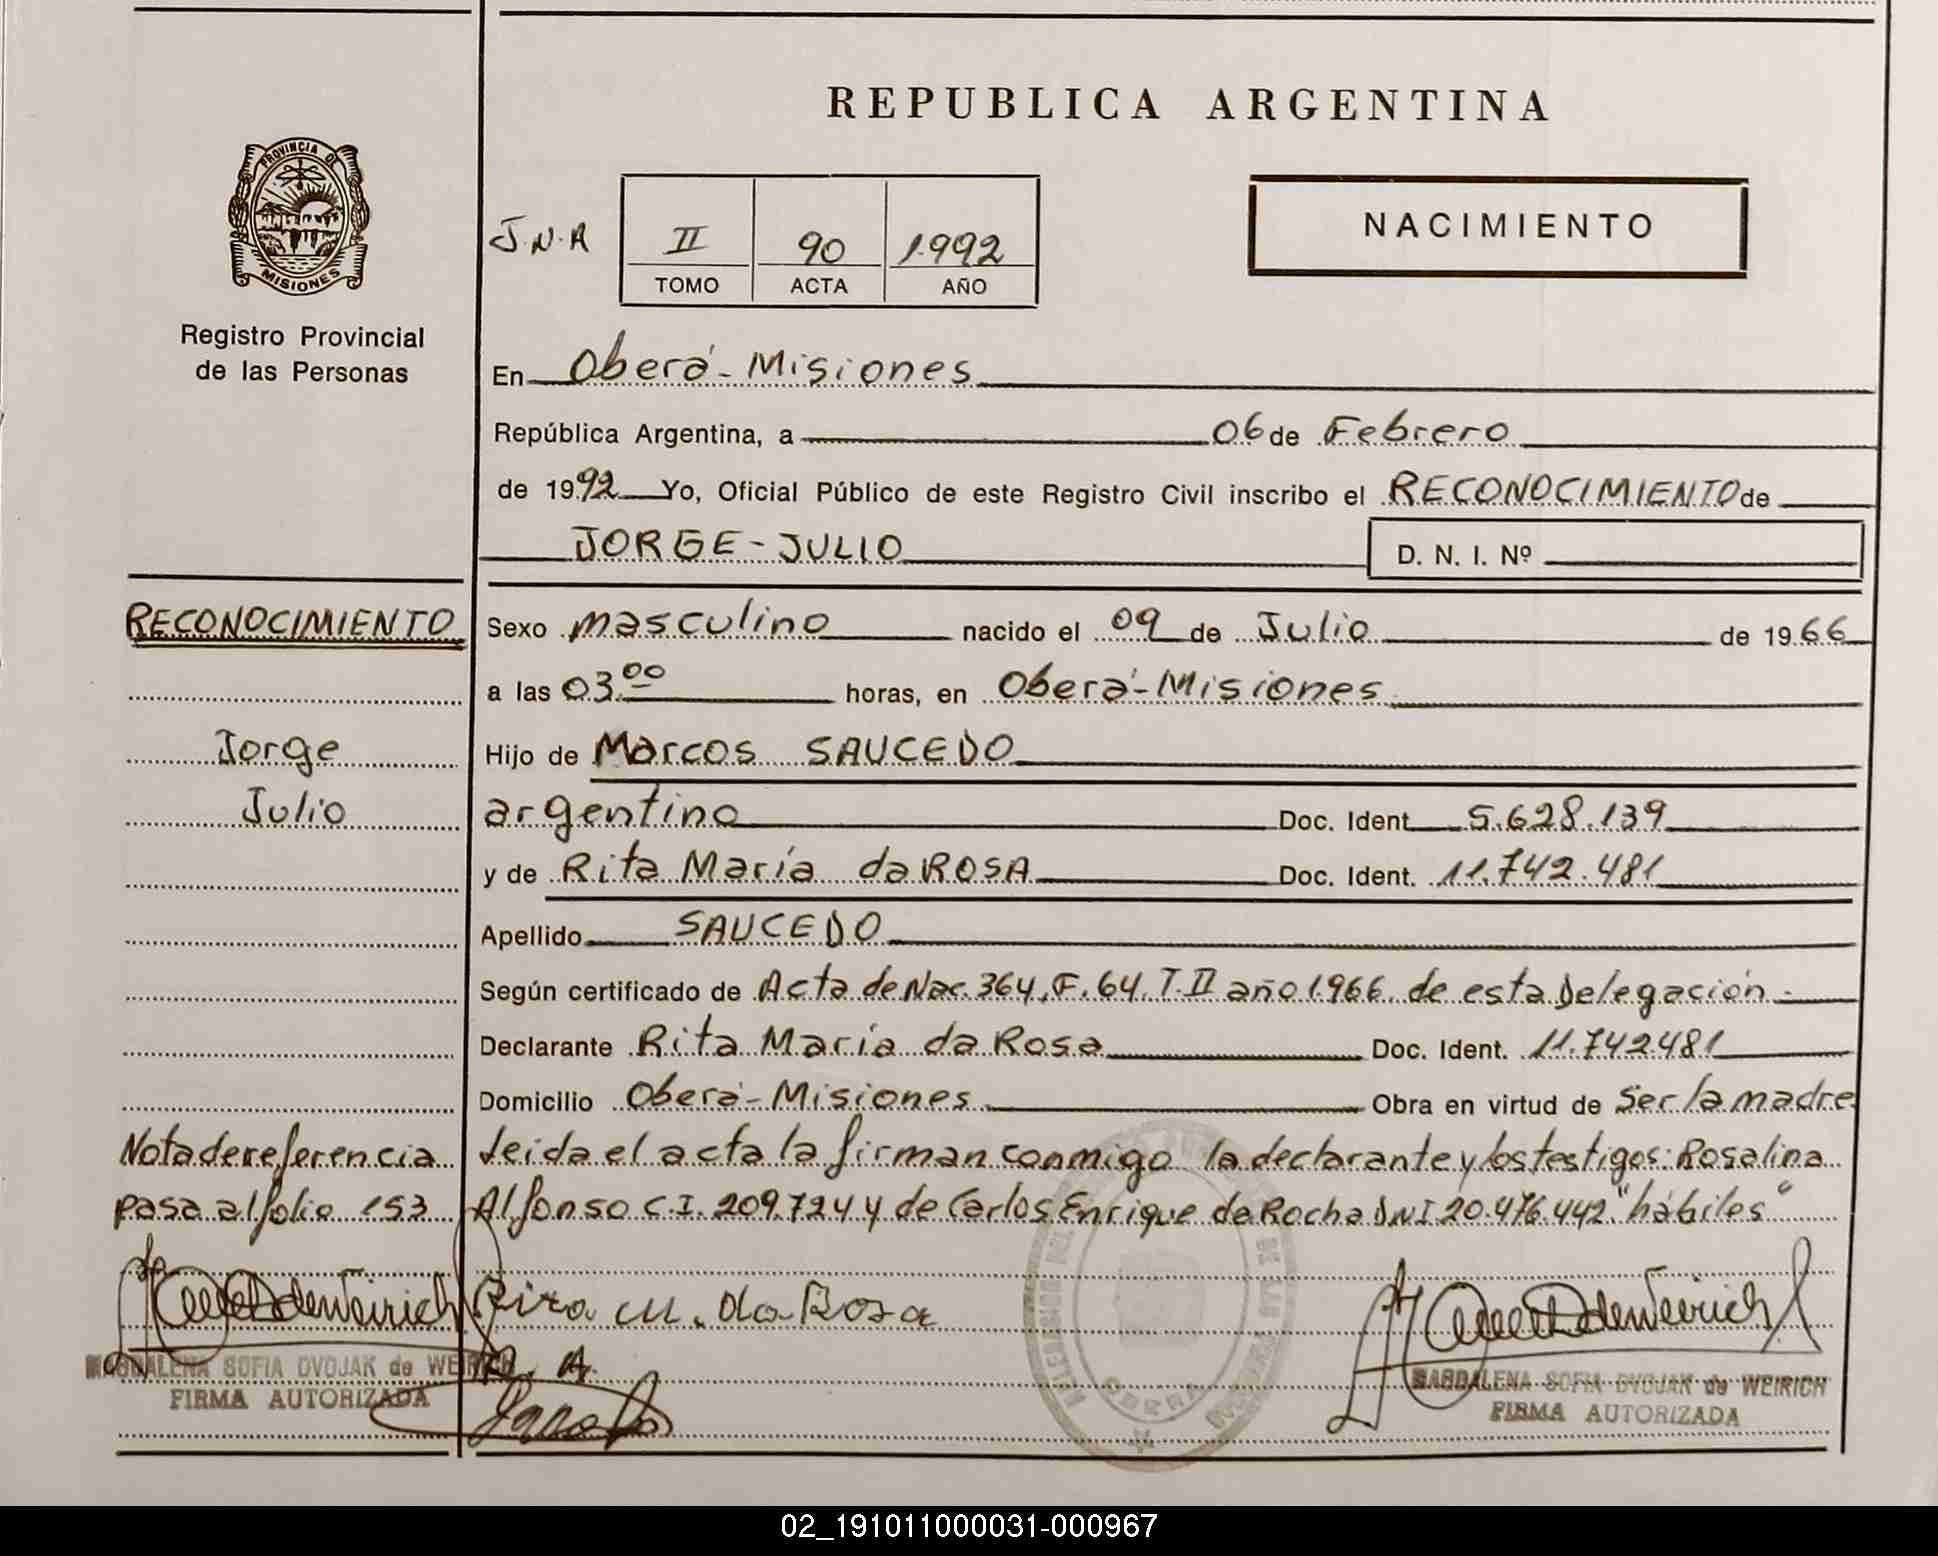 REPUBLICA ARGENTINA
PROVINCIA DE
MISIONES
Registro Provincial
de las Personas
J.N.A II 90 1.992
TOMO ACTA AÑO
NACIMIENTO
En Oberá - Misiones
República Argentina, a 06 de Febrero
de 1992 Yo, Oficial Público de este Registro Civil inscribo el RECONOCIMIENTO de
JORGE - JULIO D. N. I. Nº
RECONOCIMIENTO
Jorge
Julio
Sexo masculino nacido el 09 de Julio de 1966
a las 03.00 horas, en Oberá - Misiones
Hijo de Marcos SAUCEDO
argentino Doc. Ident. 5.628.139
y de Rita María da ROSA Doc. Ident. 11.742.481
Apellido SAUCEDO
Según certificado de Acta de Nac. 364, F. 64. T. II año 1.966 de esta Delegación -
Declarante Rita María da Rosa Doc. Ident. 11.742.481
Domicilio Oberá - Misiones Obra en virtud de Ser la madre
Leida el acta la firman conmigo la declarante y los testigos: Rosalina
Alfonso C.I. 209.724 y de Carlos Enrique da Rocha DNI 20.476.442 "hábiles"
Nota de referencia
pasa al folio 153
Rita M. da Rosa
R. A.
MAGDALENA SOFIA DVOJAK de WEIRICH
FIRMA AUTORIZADA
MAGDALENA SOFIA DVOJAK de WEIRICH
FIRMA AUTORIZADA
OBERA
02_191011000031-000967